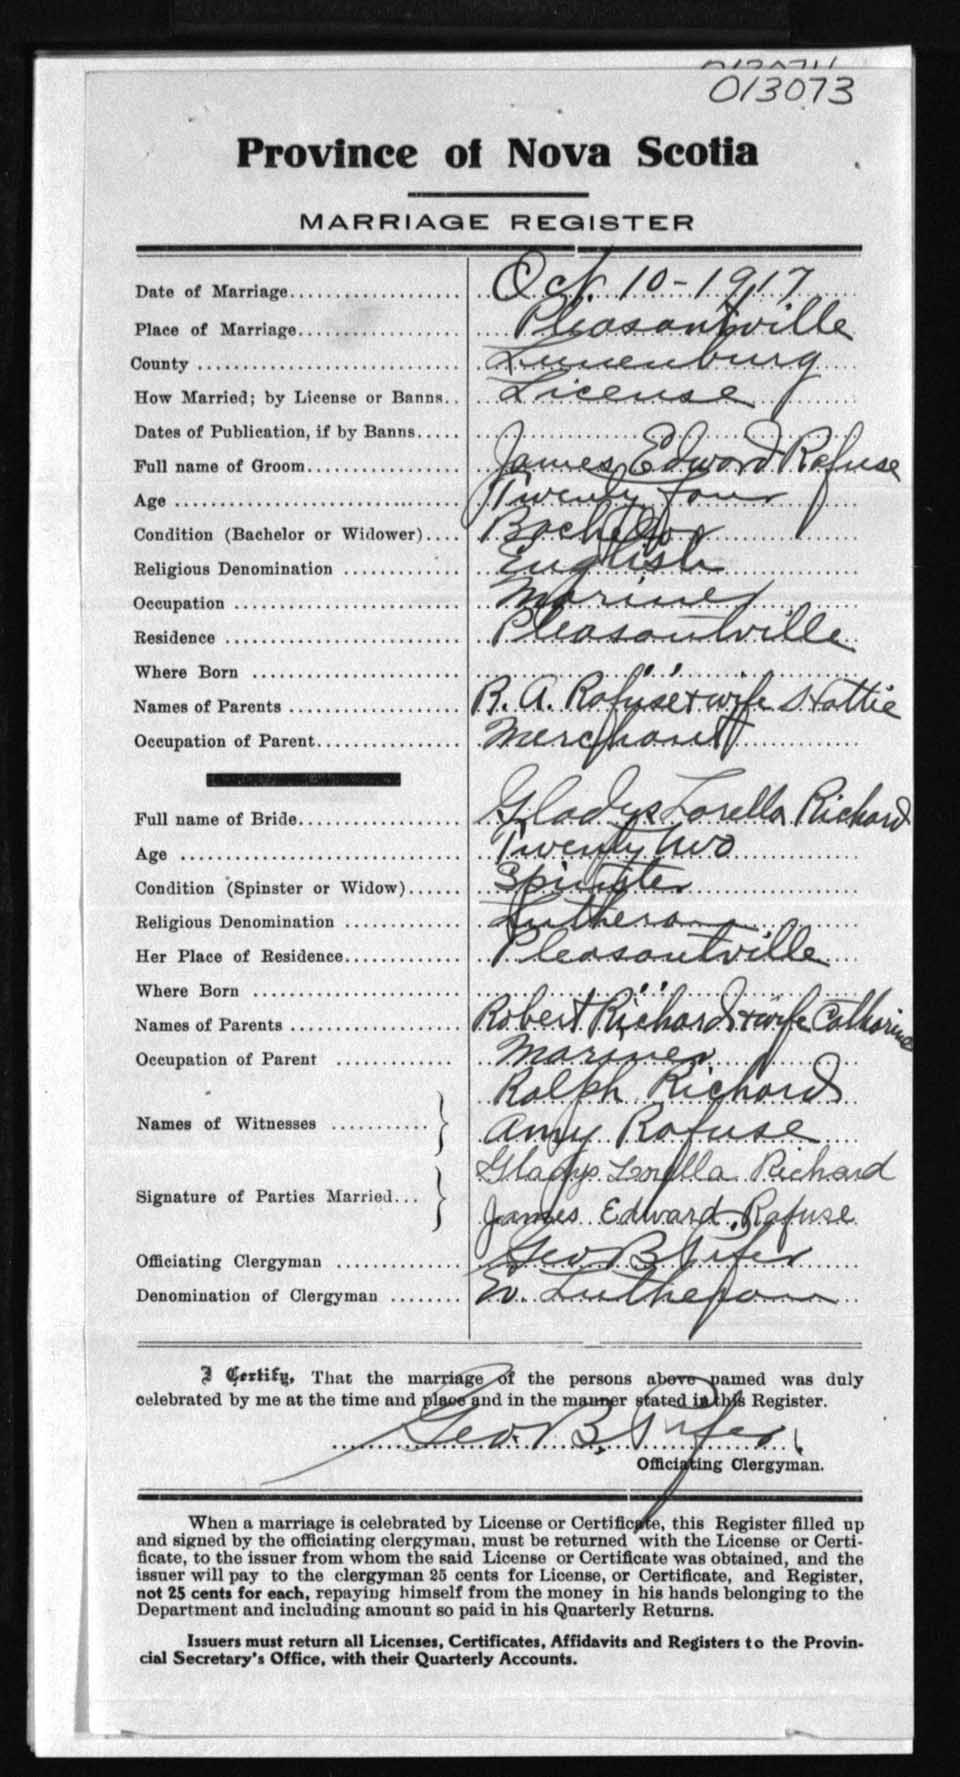 013073
Province of Nova Scotia
MARRIAGE REGISTER
Date of Marriage Oct. 10-1917
Place of Marriage Pleasantville
County Lunenburg
How Married; by License or Banns License
Dates of Publication, if by Banns
Full name of Groom James Edward Rafuse
Age Twenty four
Condition (Bachelor or Widower) Bachelor
Religious Denomination English
Occupation Mariner
Residence Pleasantville
Where Born " "
Names of Parents R. A. Rafuse + wife Hattie
Occupation of Parent Merchant
Full name of Bride Gladys Lorella Richard
Age Twenty two
Condition (Spinster or Widow) Spinster
Religious Denomination Lutheran
Her Place of Residence Pleasantville
Where Born " "
Names of Parents Robert Richard + wife Catharine
Occupation of Parent Mariner
Names of Witnesses Ralph Richard
Amy Rafuse
Signature of Parties Married Gladys Lorella Richard
James Edward Rafuse
Officiating Clergyman Geo B
Denomination of Clergyman Ev. Lutheran
I Certify, That the marriage of the persons above named was duly
celebrated by me at the time and place and in the manner stated in this Register.
Geo. B.
Officiating Clergyman.
When a marriage is celebrated by License or Certificate, this Register filled up
and signed by the officiating clergyman, must be returned with the License or Certi-
ficate, to the issuer from whom the said License or Certificate was obtained, and the
issuer will pay to the clergyman 25 cents for License, or Certificate, and Register,
not 25 cents for each, repaying himself from the money in his hands belonging to the
Department and including amount so paid in his Quarterly Returns.
Issuers must return all Licenses, Certificates, Affidavits and Registers to the Provin-
cial Secretary's Office, with their Quarterly Accounts.